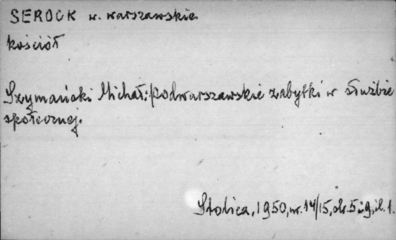 SEROCK w. warszawskie
kościół
Szymański Michał: Podwarszawskie zabytki w służbie
społecznej.
Stolica, 1950, nr. 14/15, str. 5 i 9, il. 1.